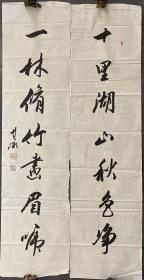 十里湖山秋色净
一林脩竹畫眉啼